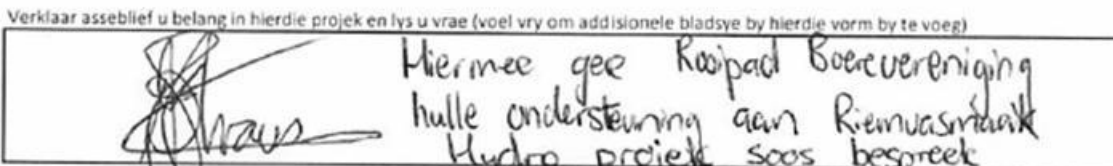 Verklaar asseblief u belang in hierdie projek en lys u vrae (voel vry om addisionele bladsye by hierdie vorm by te voeg)
Hiermee gee Rooipad Boerevereniging
hulle ondersteuning aan Riemvasmaak
Hydro projek soos bespreek